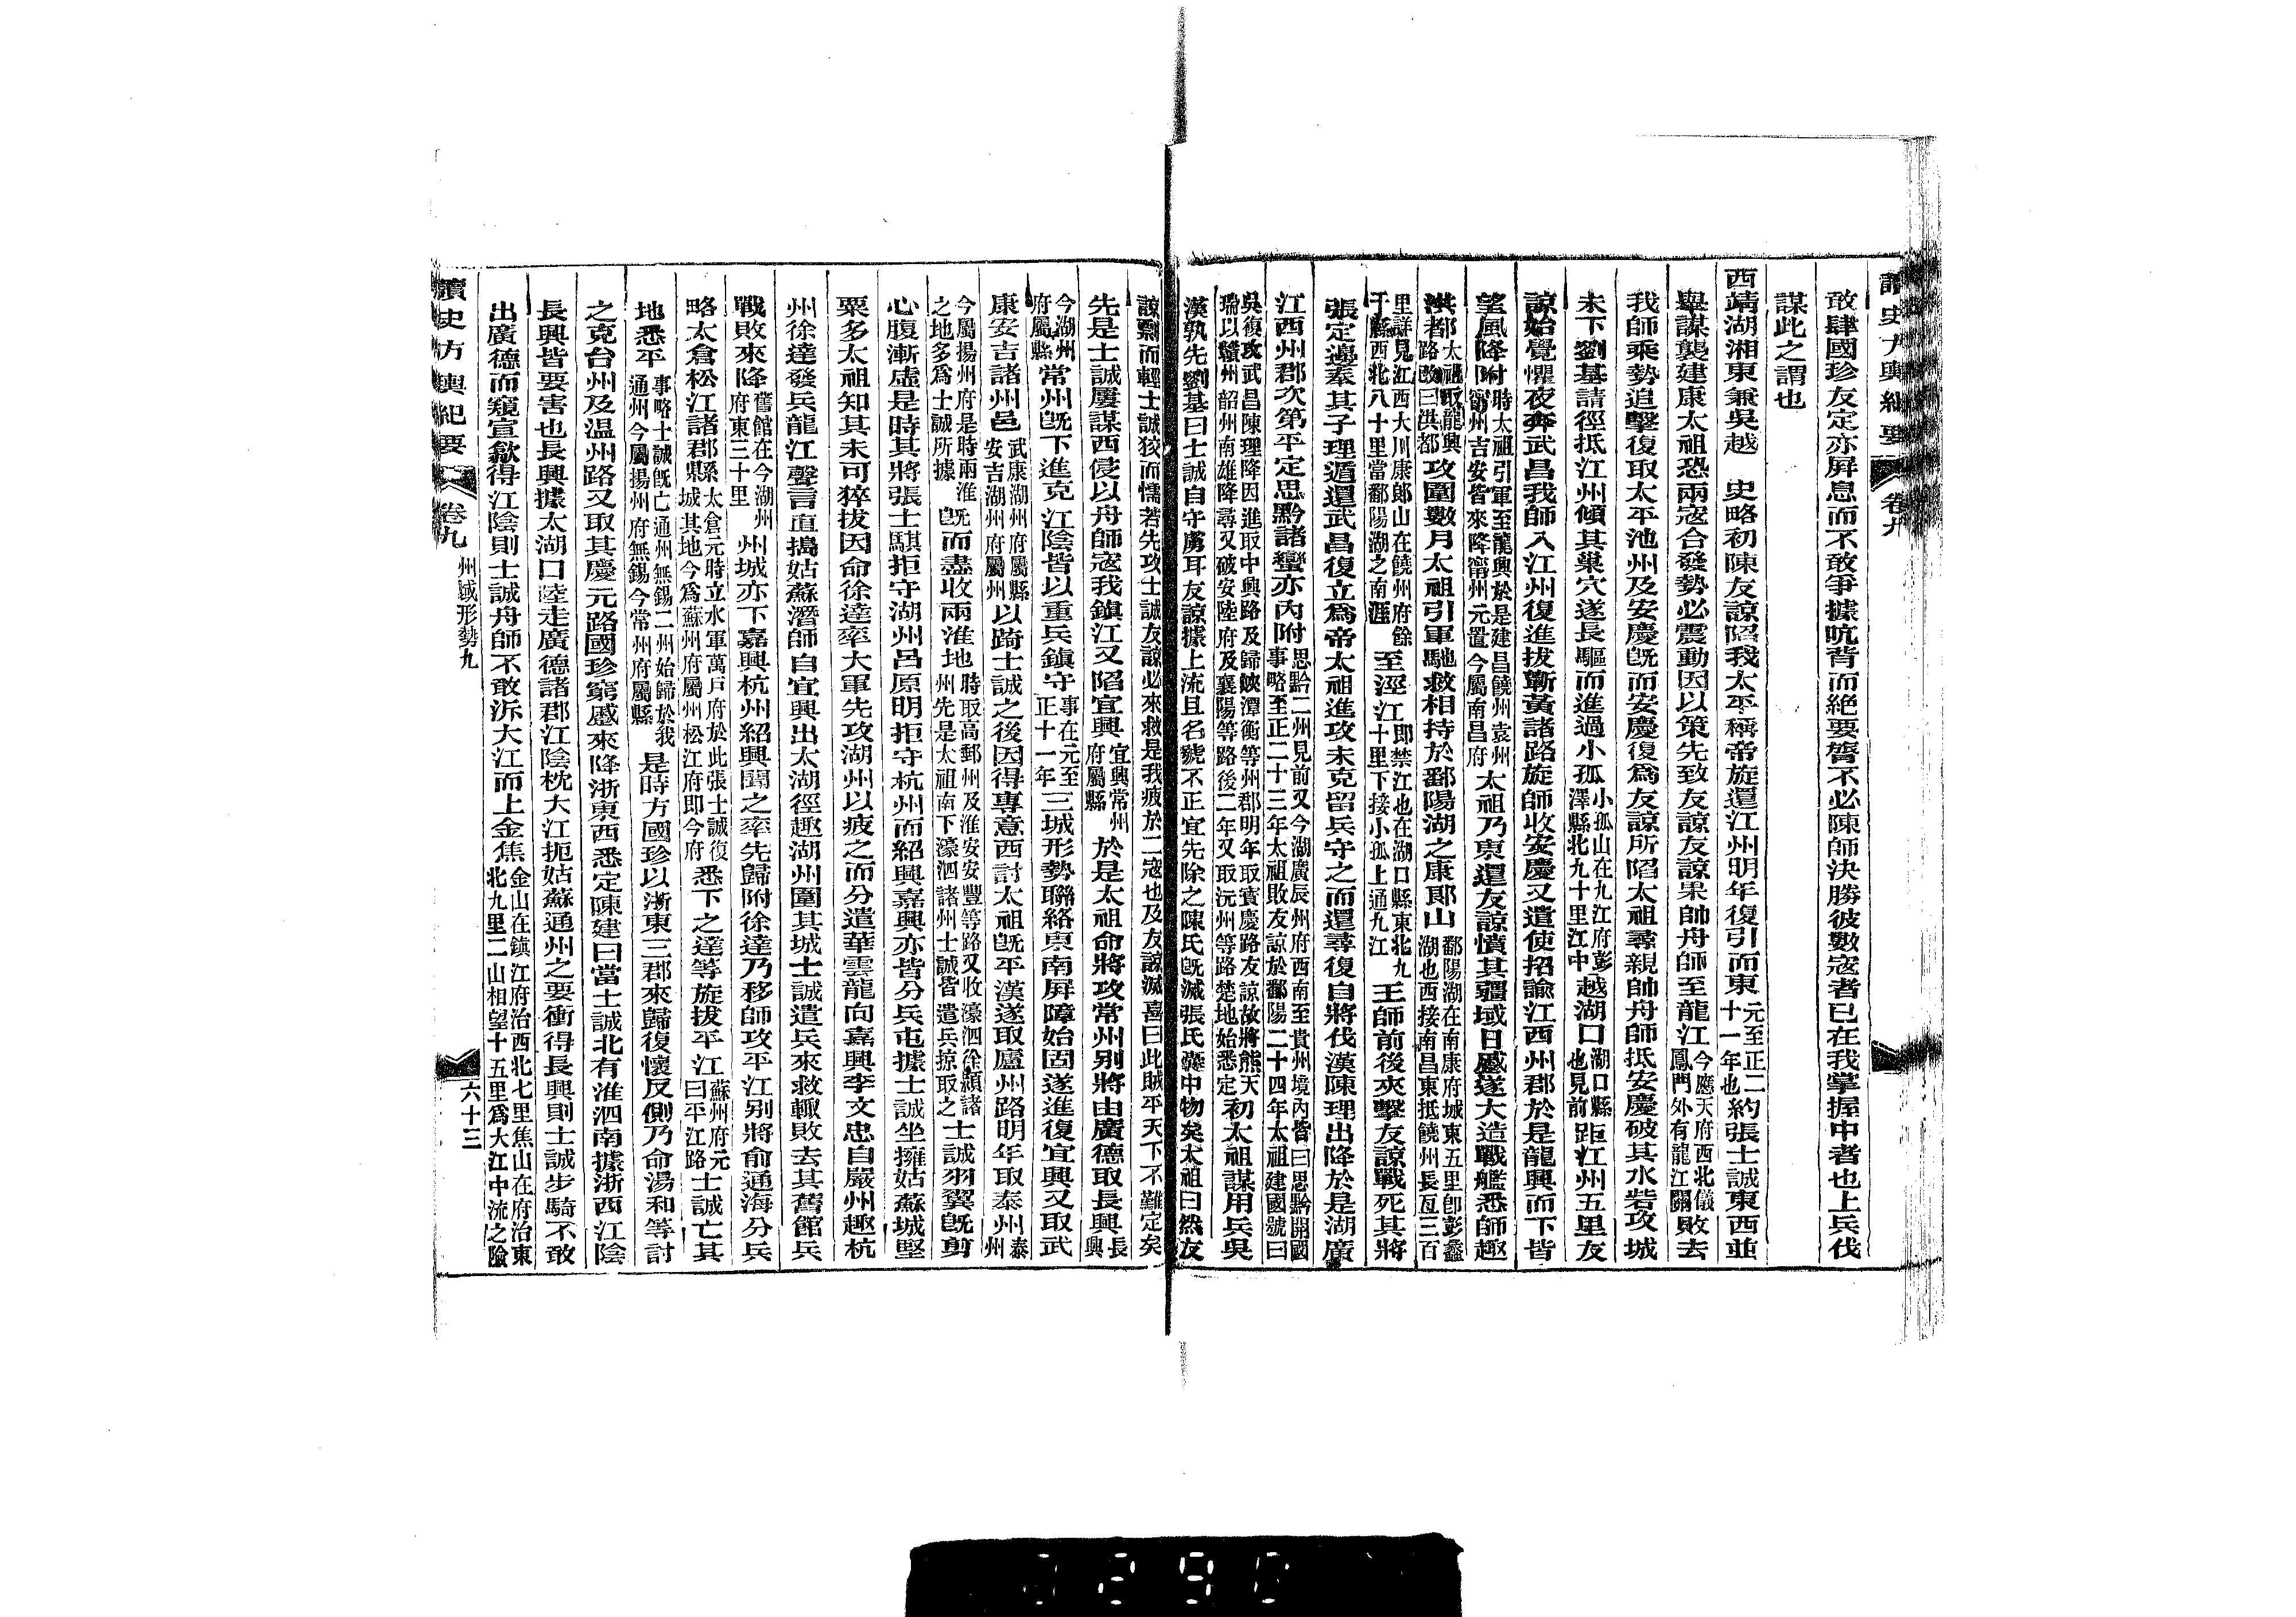 讀史方輿紀要 卷九
敢肆國珍友定亦屏息而不敢爭據吭背而絕要膂不必陳師決勝彼數寇者已在我掌握中者也上兵伐
謀此之謂也
西靖湖湘東兼吳越 史略初陳友諒陷我太平稱帝旋還江州明年復引而東元至正二十一年也約張士誠東西並
舉謀襲建康太祖恐兩寇合發勢必震動因以策先致友諒友諒果帥舟師至龍江今應天府西北儀鳳門外有龍江關敗去
我師乘勢追擊復取太平池州及安慶旣而安慶復爲友諒所陷太祖尋親帥舟師抵安慶破其水砦攻城
未下劉基請徑抵江州傾其巢穴遂長驅而進過小孤小孤山在九江府彭澤縣北九十里江中越湖口湖口縣也見前距江州五里友
諒始覺懼夜奔武昌我師入江州復進拔蘄黃諸路旋師收安慶又遣使招諭江西州郡於是龍興而下皆
望風降附時太祖引軍至龍興於是建昌饒州袁州甯州吉安皆來降甯州元置今屬南昌府太祖乃東還友諒憤其疆域日蹙遂大造戰艦悉師趣
洪都太祖取龍興路改曰洪都攻圍數月太祖引軍馳救相持於鄱陽湖之康郞山鄱陽湖在南康府城東五里卽彭蠡湖也西接南昌東抵饒州長亙三百
里詳見江西大川康郞山在饒州府餘干縣西北八十里當鄱陽湖之南涯至涇江卽禁江也在湖口縣東北九十里下接小孤上通九江王師前後夾擊友諒戰死其將
張定邊奉其子理遁還武昌復立爲帝太祖進攻未克留兵守之而還尋復自將伐漢陳理出降於是湖廣
江西州郡次第平定思黔諸蠻亦內附思黔二州見前又今湖廣辰州府西南至貴州境內皆曰思黔開國事略至正二十三年太祖敗友諒於鄱陽二十四年太祖建國號曰
吳復攻武昌陳理降因進取中興路及歸峽潭衡等州郡明年取寶慶路友諒故將熊天瑞以贛州韶州南雄降尋又破安陸府及襄陽等路後二年又取沅州等路楚地始悉定初太祖謀用兵吳
漢孰先劉基曰士誠自守虜耳友諒據上流且名號不正宜先除之陳氏旣滅張氏囊中物矣太祖曰然友
諒剽而輕士誠狡而懦若先攻士誠友諒必來救是我疲於二寇也及友諒滅喜曰此賊平天下不難定矣
先是士誠屢謀西侵以舟師寇我鎭江又陷宜興宜興常州府屬縣於是太祖命將攻常州別將由廣德取長興長興
今湖州府屬縣常州旣下進克江陰皆以重兵鎭守事在元至正十一年三城形勢聯絡東南屏障始固遂進復宜興又取武
康安吉諸州邑武康湖州府屬縣安吉湖州府屬州以踦士誠之後因得專意西討太祖旣平漢遂取廬州路明年取泰州泰州
今屬揚州府是時兩淮之地多爲士誠所據旣而盡收兩淮地時取高郵州及淮安安豐等路又收濠泗徐潁諸州先是太祖南下濠泗諸州士誠皆遣兵掠取之士誠羽翼旣剪
心腹漸虛是時其將張士騏拒守湖州呂原明拒守杭州而紹興嘉興亦皆分兵屯據士誠坐擁姑蘇城堅
粟多太祖知其未可猝拔因命徐達率大軍先攻湖州以疲之而分遣華雲龍向嘉興李文忠自嚴州趣杭
州徐達發兵龍江聲言直搗姑蘇潛師自宜興出太湖徑趣湖州圍其城士誠遣兵來救輒敗去其舊館兵
戰敗來降舊館在今湖州府東三十里州城亦下嘉興杭州紹興聞之率先歸附徐達乃移師攻平江別將俞通海分兵
略太倉松江諸郡縣太倉元時立水軍萬戶府於此張士誠復城其地今爲蘇州府屬州松江府卽今府悉下之達等旋拔平江蘇州府元曰平江路士誠亡其
地悉平事略士誠旣亡通州無錫二州始歸於我通州今屬揚州府無錫今常州府屬縣是時方國珍以浙東三郡來歸復懷反側乃命湯和等討
之克台州及溫州路又取其慶元路國珍窮蹙來降浙東西悉定陳建曰當士誠北有淮泗南據浙西江陰
長興皆要害也長興據太湖口陸走廣德諸郡江陰枕大江扼姑蘇通州之要衝得長興則士誠步騎不敢
出廣德而窺宣歙得江陰則士誠舟師不敢泝大江而上金焦金山在鎭江府治西北七里焦山在府治東北九里二山相望十五里爲大江中流之險
讀史方輿紀要 卷九 州域形勢九 六十三